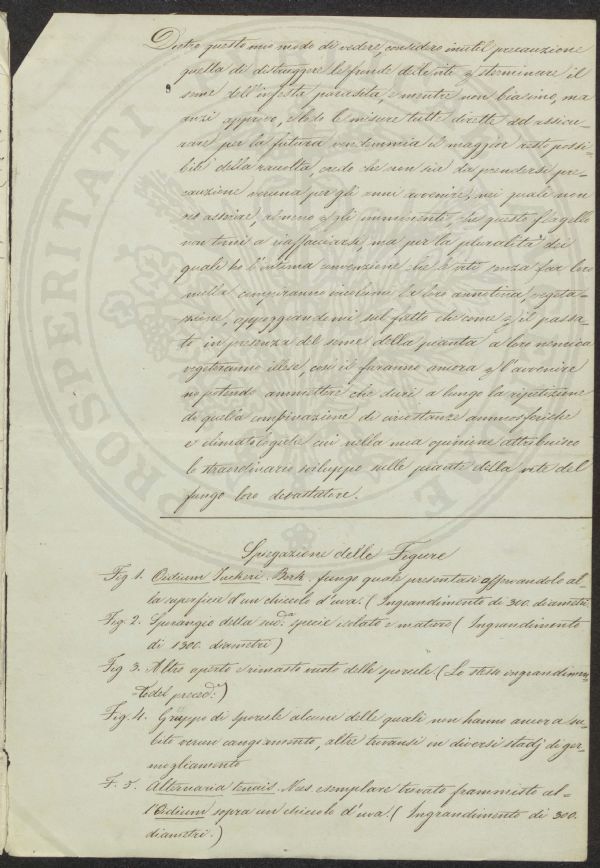 Dietro questo mio modo di vedere, considero inutil precauzione
quella di distruggere le fronde delle viti p sterminare il
seme dell'infesta parasita, e mentre non biasimo, ma
anzi approvo, e lodo le misure tutte dirette ad assicu-
rare per la futura vendemmia il maggior resto possi-
bile della raccolta, credo che non sia da prendersi pre-
cauzione veruna per gli anni avvenire, nei quali non
oso asserire, almeno p gli imminenti che questo flagello
non torni a riaffacciarsi, ma per la pluralità dei
quali ho l'intima convenzione che le viti senza far loro
nulla compiranno incolumi la loro annotina vegeta-
zione, appoggiandomi sul fatto che come p il passa-
to in presenza del seme della pianta a loro nemica
vegetarono illese, così il faranno ancora p l'avvenire
non potendo ammettere che duri a lungo la ripetizione
di quella cospirazione di circostanze atmosferiche
e climatologiche cui nella mia opinione attribuisco
lo straordinario sviluppo sulle piante della vite del
fungo loro devastatore.
Spiegazione delle Figure
Fig 1. Oidium Tuckeri. Berk. fungo quale presentasi osservandolo al-
la superficie d'un chiccolo d'uva. (Ingrandimento di 300. diametri
Fig. 2. Sporangio della sud.a specie isolato e maturo (Ingrandimento
di 1300. diametri)
Fig 3. Altro aperto e rimasto vuoto delle sporule (Lo stesso ingrandimen-
to del preced.e)
Fig. 4. Gruppo di sporule alcune delle quali non hanno ancora su-
bito verun cangiamento, altre trovansi in diversi stadj di ger-
mogliamento
F. 5. Alternaria tenuis. Nees. esemplare trovato frammisto al-
l'Oidium sopra un chiccolo d'uva. (Ingrandimento di 300.
diametri.)
PROSPERITATI